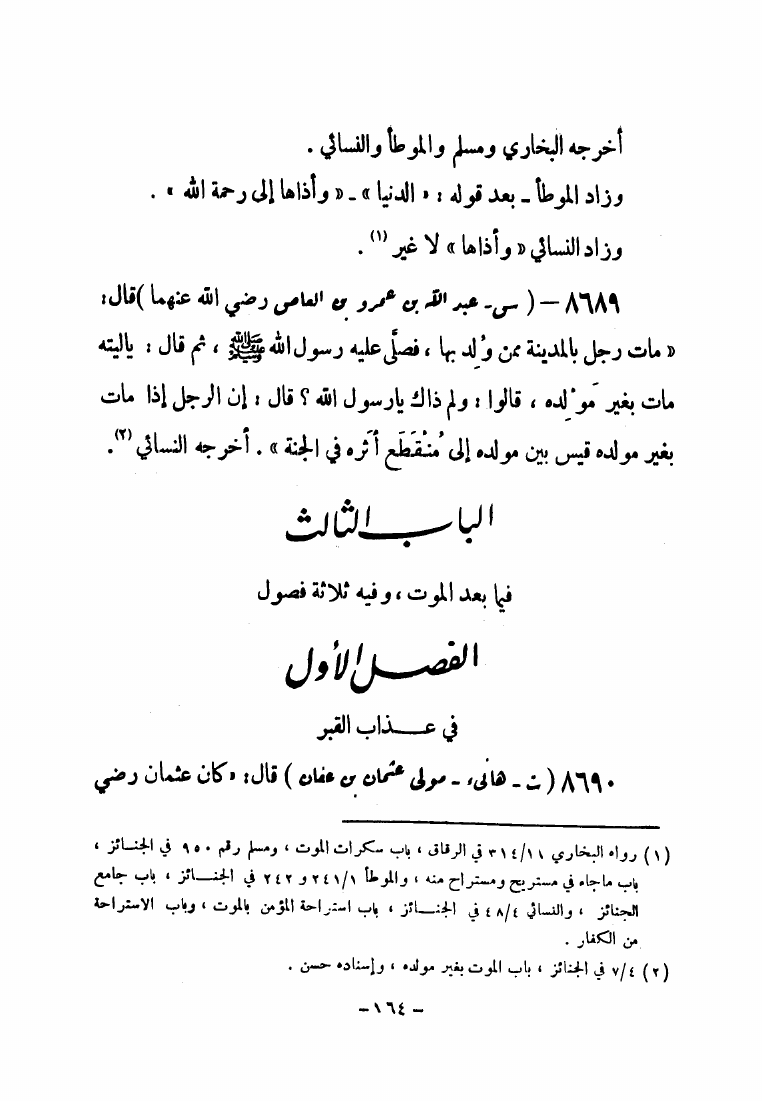 أخرجه البخاري ومسلم والموطأ والنسائي .
وزاد الموطأ ـ بعد قوله : « الدنيا » ـ « وأذاها إلى رحمة الله » .
وزاد النسائي « وأذاها » لا غير (١) .
٨٦٨٩ – ( س ـ عبد الله بن عمرو بن العاص رضي الله عنهما ) قال :
« مات رجل بالمدينة ممن وُلِد بها ، فصلَّى عليه رسول الله ﷺ ، ثم قال : ياليته
مات بغير مَوْلِده ، قالوا : ولم ذاك يارسول الله ؟ قال : إن الرجل إذا مات
بغير مولده قيس بين مولده إلى مُنْقَطَع أَثَره في الجنة » . أخرجه النسائي (٢) .
الباب الثالث
فيما بعد الموت ، وفيه ثلاثة فصول
الفصل الأول
في عذاب القبر
٨٦٩٠ ( ت ـ هانىء ـ مولى عثمان بن عفان ) قال : « كان عثمان رضي
(١) رواه البخاري ٣١٤/١١ في الرقاق ، باب سكرات الموت ، ومسلم رقم ٩٥٠ في الجنائز ،
باب ماجاء في مستريح ومستراح منه ، والموطأ ٢٤١/١ و ٢٤٢ في الجنائز ، باب جامع
الجنائز ، والنسائي ٤٨/٤ في الجنائز ، باب استراحة المؤمن بالموت ، وباب الاستراحة
من الكفار .
(٢) ٧/٤ في الجنائز ، باب الموت بغير مولده ، وإسناده حسن .
– ١٦٤ –